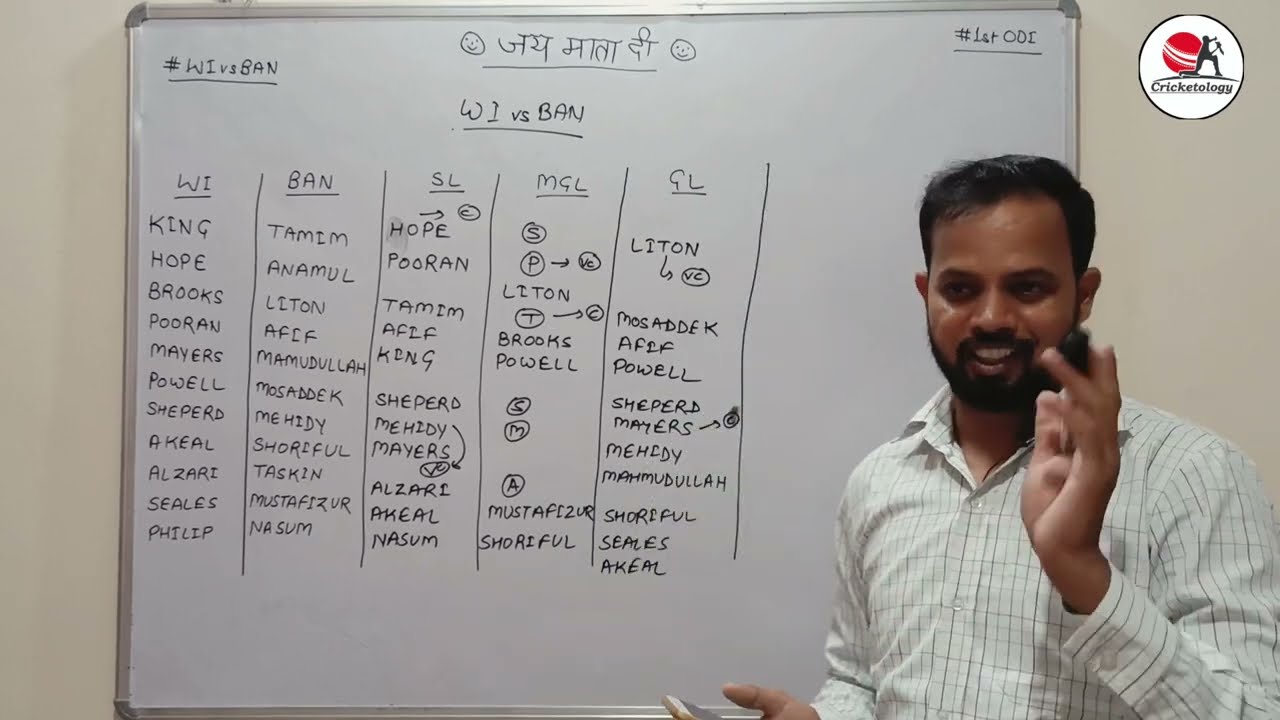 #WIvsBAN
☺ जय माता दी ☺
#1st ODI
Cricketology
WI vs BAN
WI
KING
HOPE
BROOKS
POORAN
MAYERS
POWELL
SHEPERD
AKEAL
ALZARI
SEALES
PHILIP
BAN
TAMIM
ANAMUL
LITON
AFIF
MAMUDULLAH
MOSADDEK
MEHIDY
SHORIFUL
TASKIN
MUSTAFIZUR
NASUM
SL
HOPE → C
POORAN
TAMIM
AFIF
KING
SHEPERD
MEHIDY
MAYERS
VC
ALZARI
AKEAL
NASUM
MGL
S
P → VC
LITON
T → C
BROOKS
POWELL
S
M
A
MUSTAFIZUR
SHORIFUL
GL
LITON
↳ VC
MOSADDEK
AFIF
POWELL
SHEPERD
MAYERS → C
MEHIDY
MAHMUDULLAH
SHORIFUL
SEALES
AKEAL